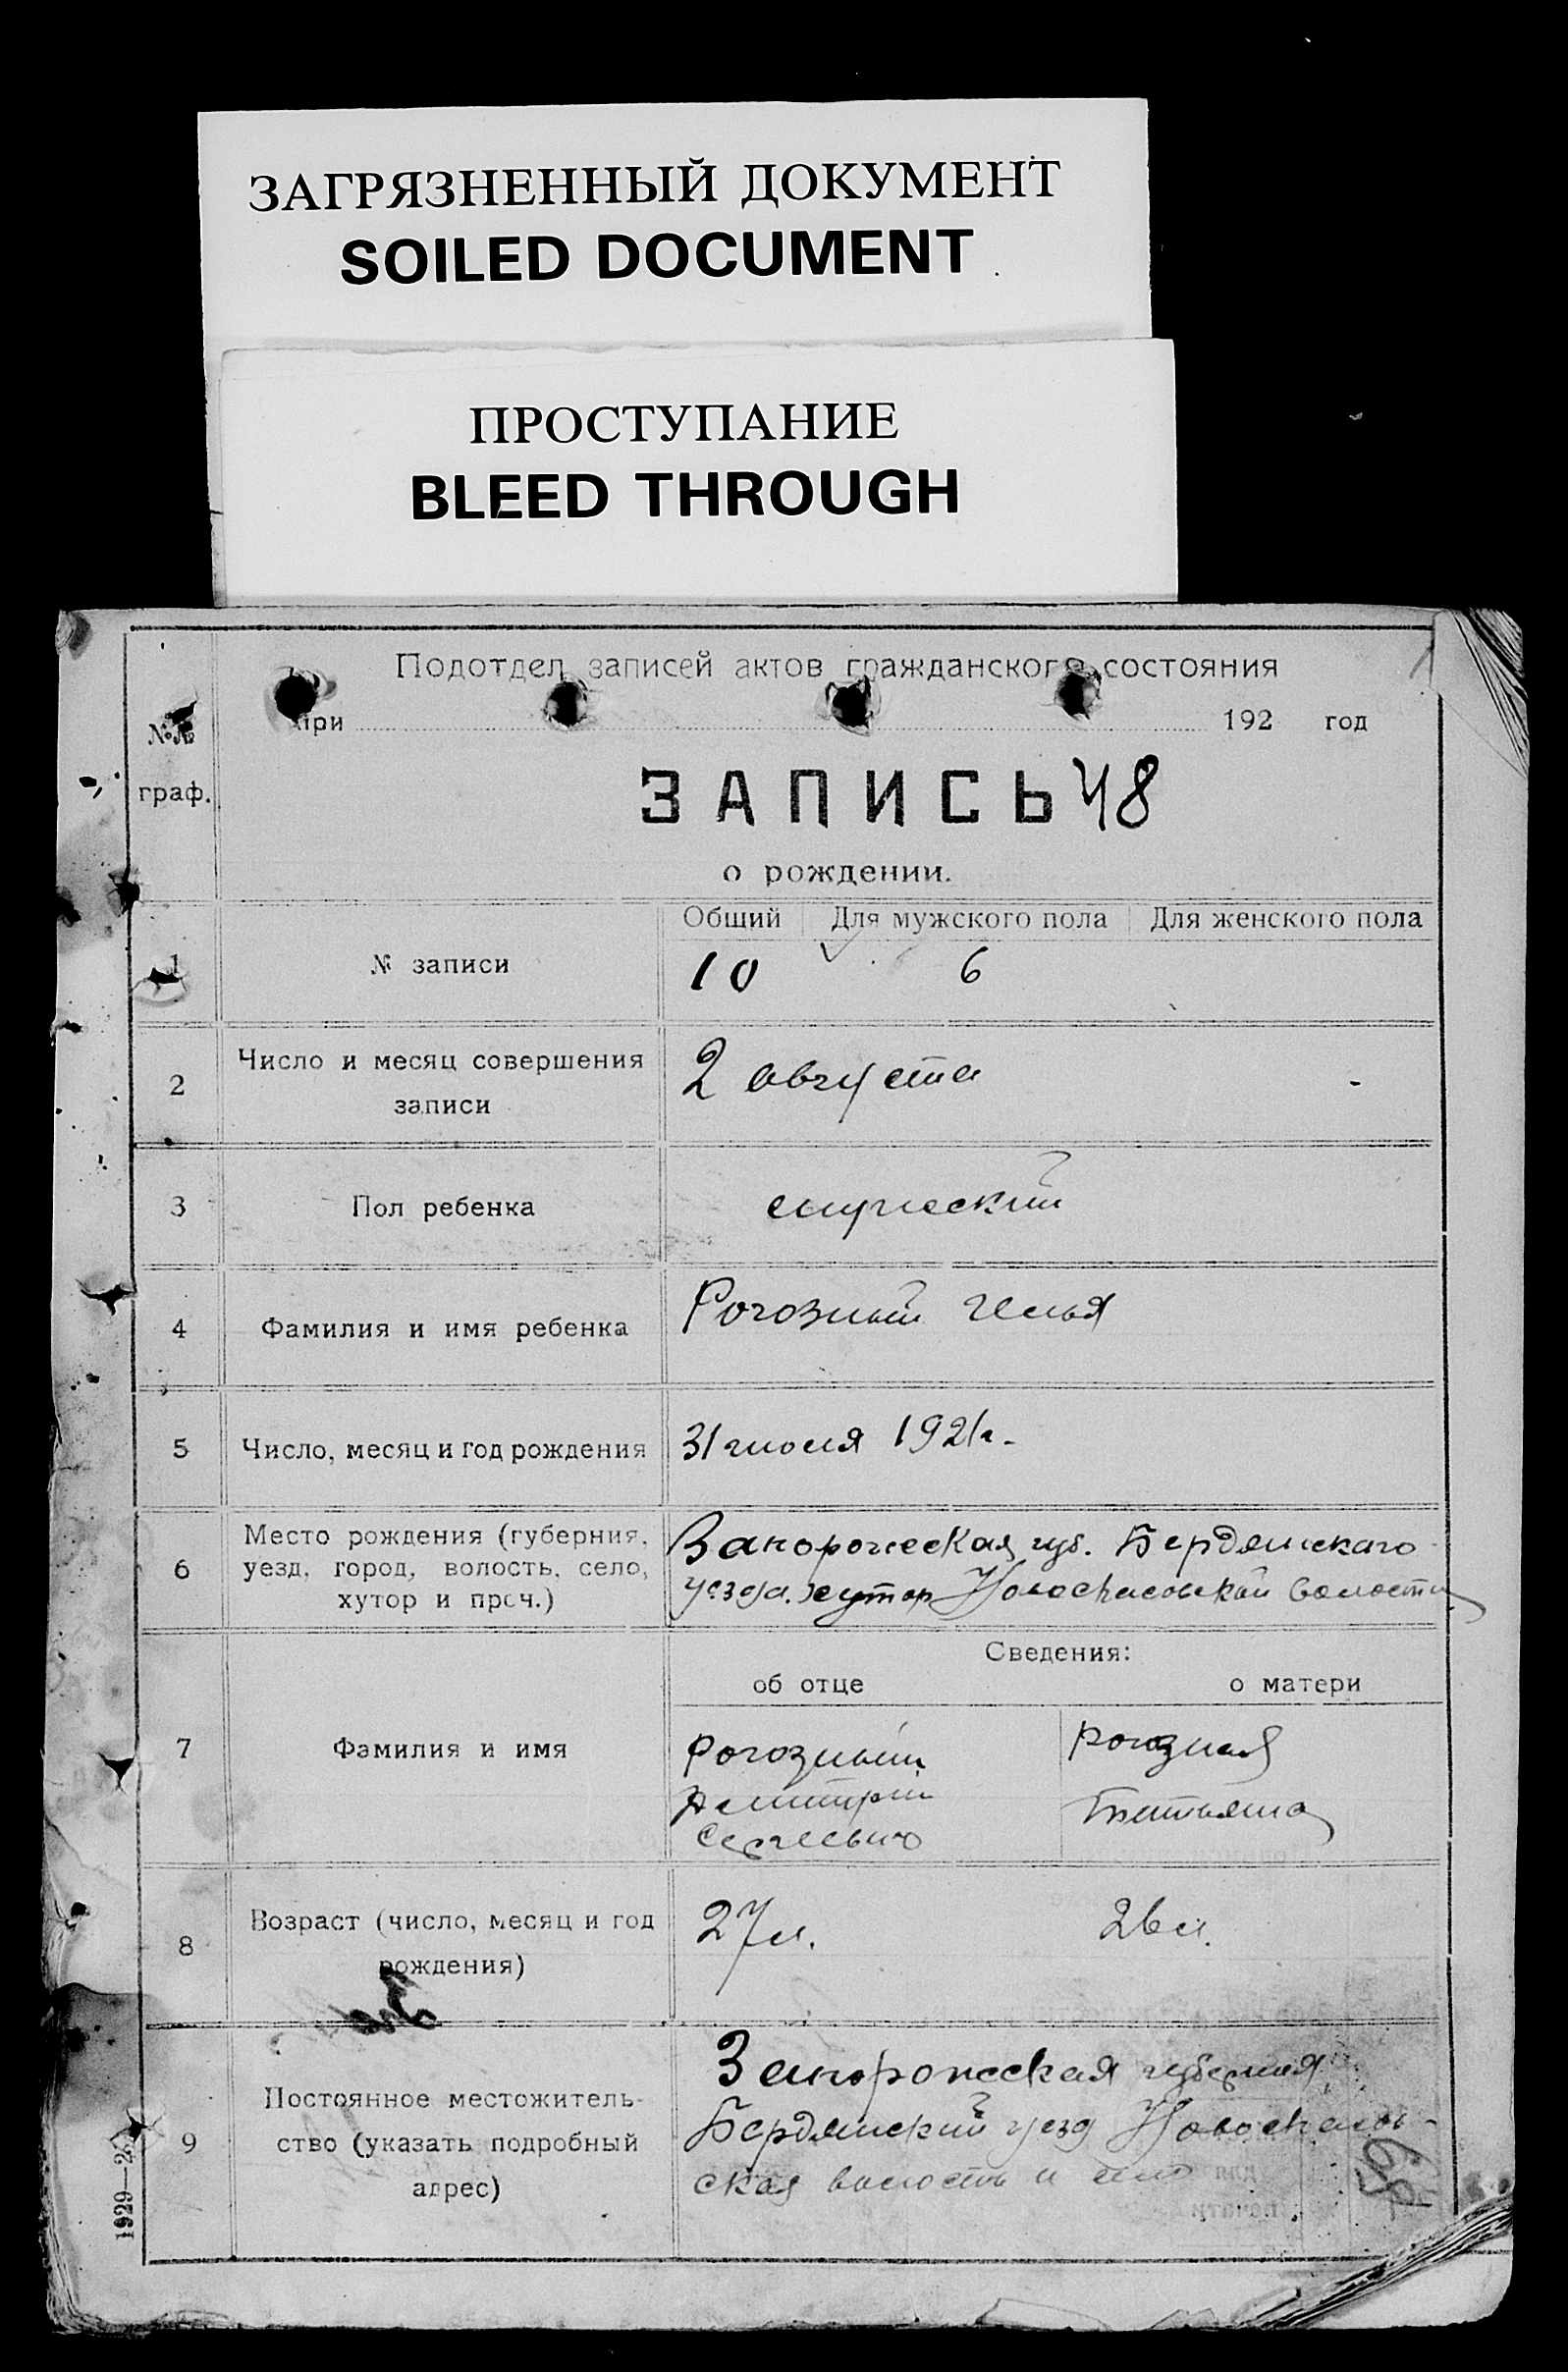 ЗАГРЯЗНЕННЫЙ ДОКУМЕНТ
SOILED DOCUMENT
ПРОСТУПАНИЕ
BLEED THROUGH
Подотдел записей актов гражданского состояния
1
№№
граф.
при 192 год
ЗАПИСЬ 48
о рождении.
Общий Для мужского пола Для женского пола
1 № записи 10 6
2 Число и месяц совершения
записи
2 августа
3 Пол ребенка мужеский
4 Фамилия и имя ребенка Рогозный Илья
5 Число, месяц и год рождения 31 июля 1921 г.
6 Место рождения (губерния,
уезд, город, волость, село,
хутор и проч.)
Запорожеская губ. Бердянскаго
уезда. хутор Новоспасовской волости
Сведения:
об отце о матери
7 Фамилия и имя
Рогозный
Дмитрий
Сергеевич
Рогозная
Татьяна
8 Возраст (число, месяц и год
рождения)
27 л. 26 л.
9 Постоянное местожитель-
ство (указать подробный
адрес)
Запорожская губерния
Бердянский уезд Новоспасов-
ская волость и село
1929—2